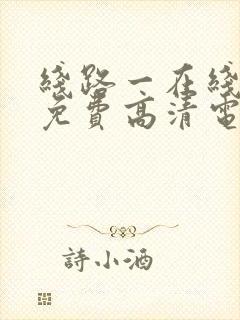 綫路一在綫
免費高清電
詩小酒